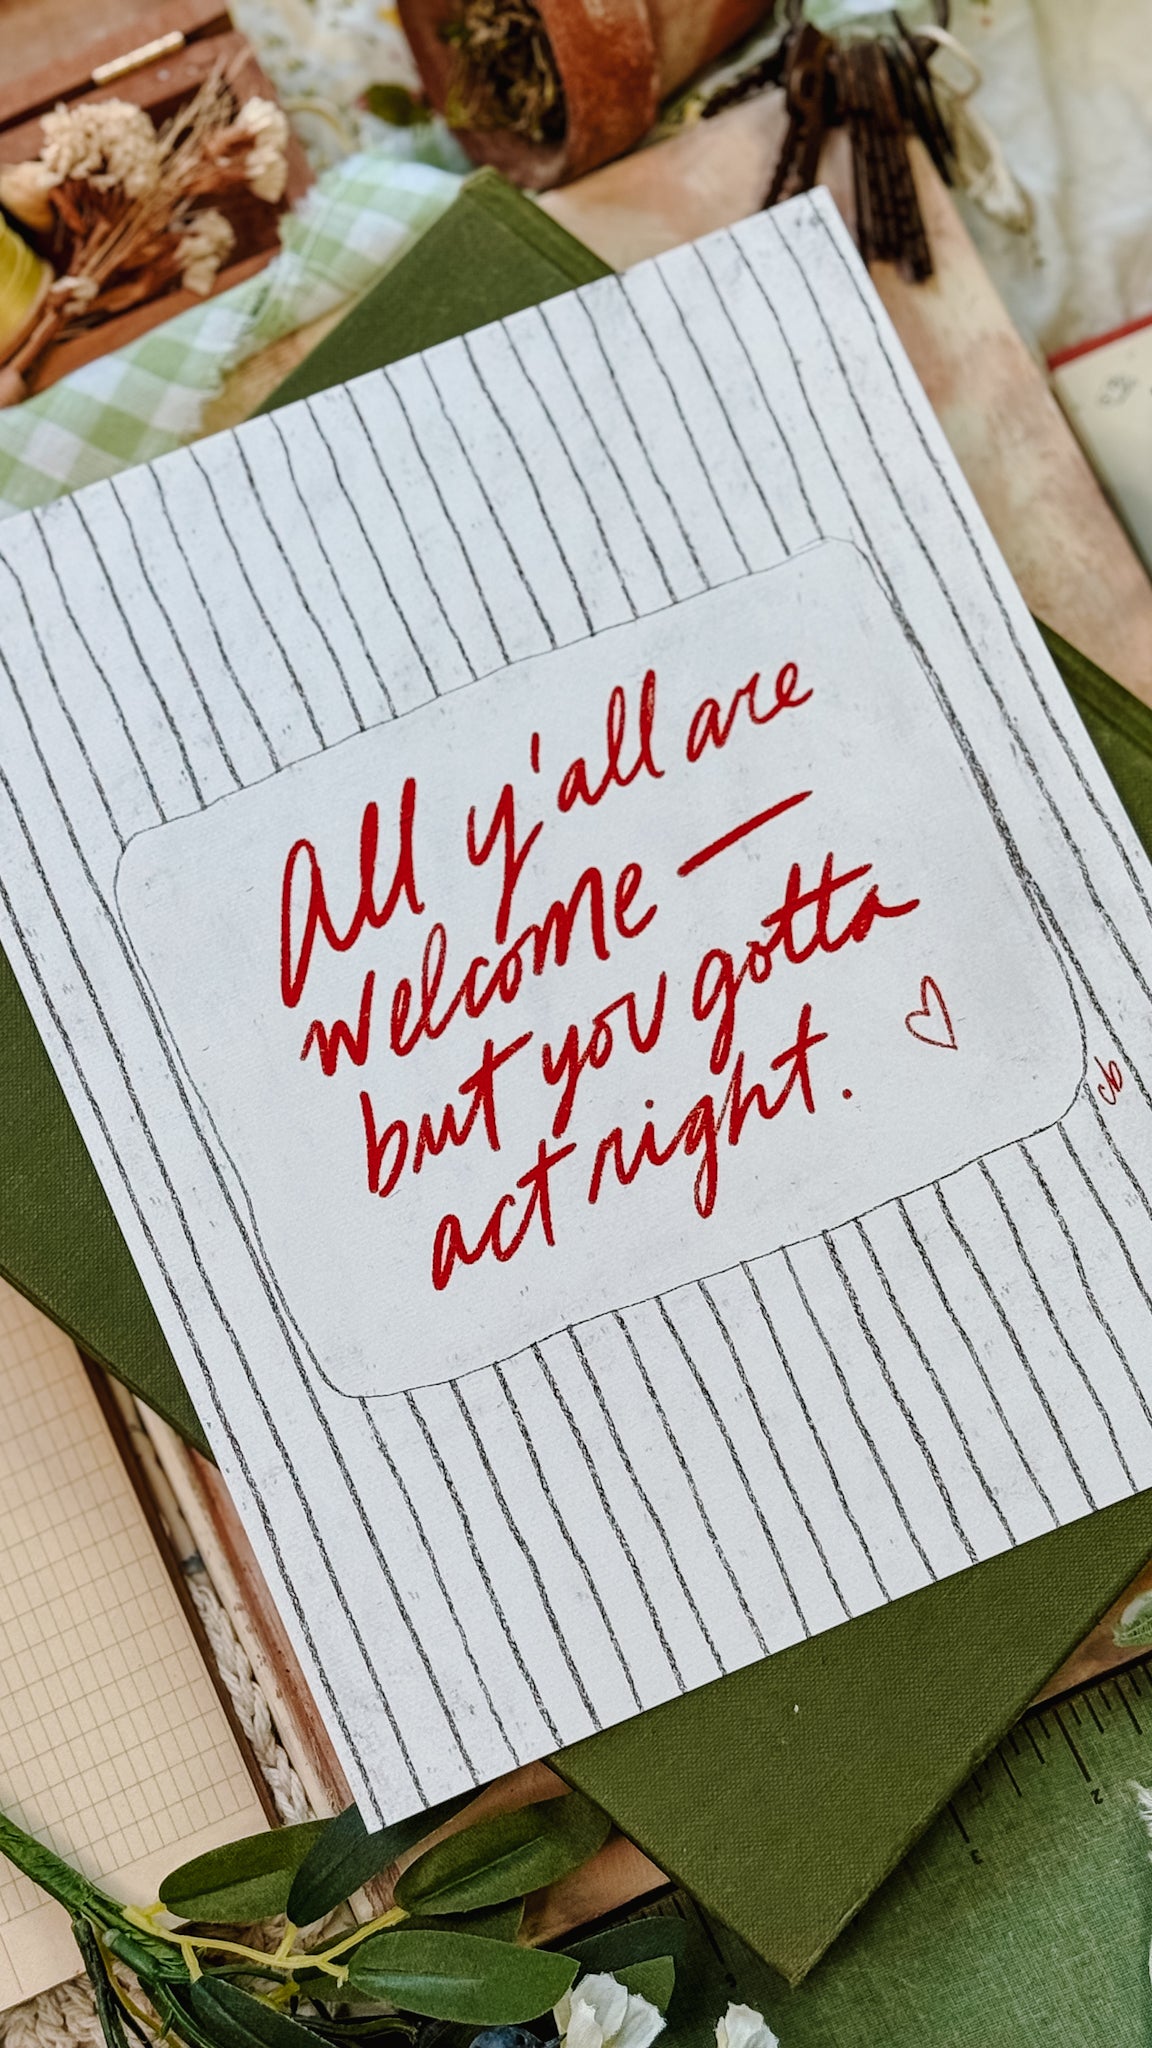 All y'all are
welcome —
but you gotta
act right.
cb
2
3